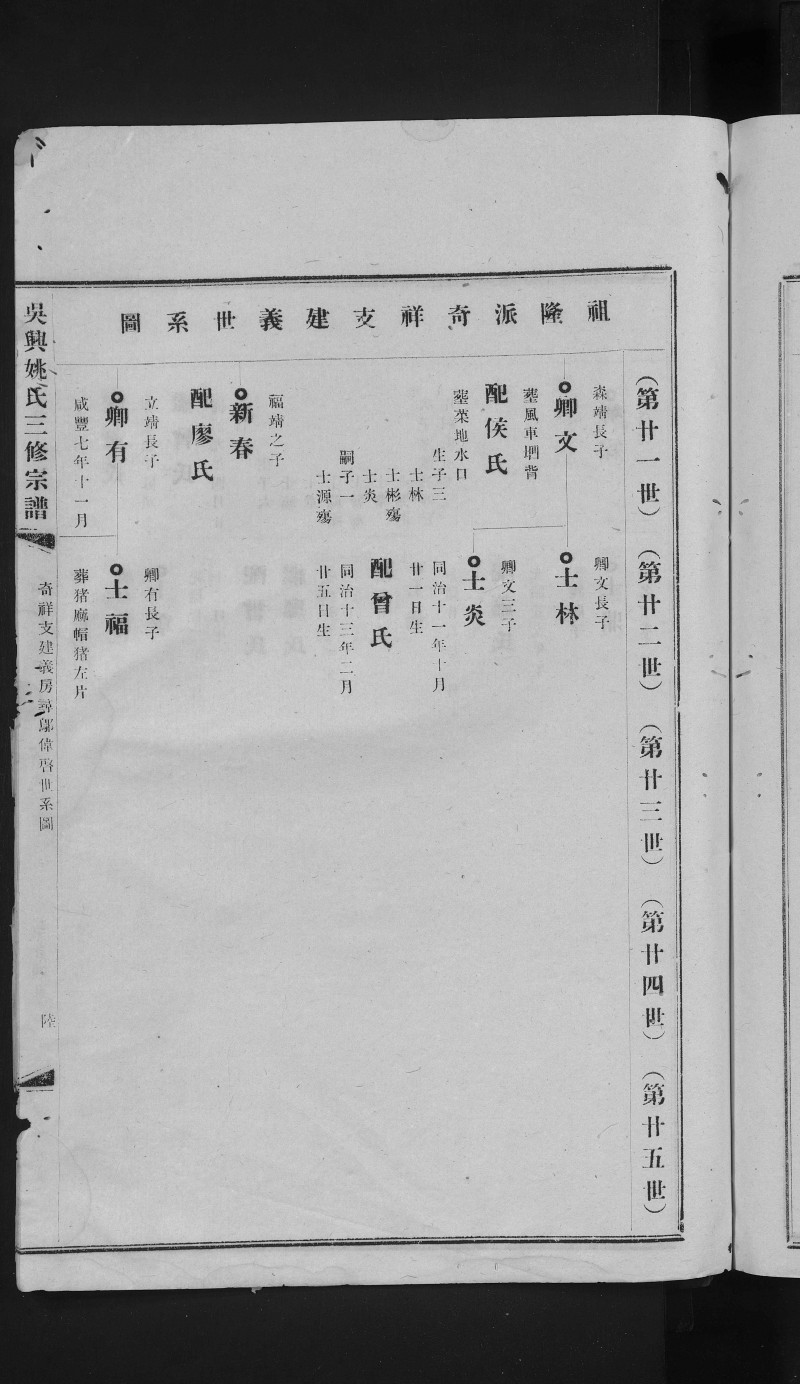 祖隆派奇祥支建義世系圖
（第廿一世）（第廿二世）（第廿三世）（第廿四世）（第廿五世）
森靖長子
卿文
塟風車垇背
配侯氏
塟菜地水口
生子三
士林
士彬殤
士炎
嗣子一
士源殤
福靖之子
新春
配廖氏
立靖長子
卿有
咸豐七年十一月
卿文長子
士林
卿文三子
士炎
同治十一年十月
廿一日生
配曾氏
同治十三年二月
廿五日生
卿有長子
士福
葬猪廠帽猪左片
吳興姚氏三修宗譜
奇祥支建義房尋鄔偉啓世系圖
陸